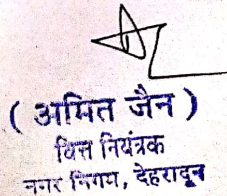 ( अमित जैन )
वित्त नियंत्रक
नगर निगम, देहरादून